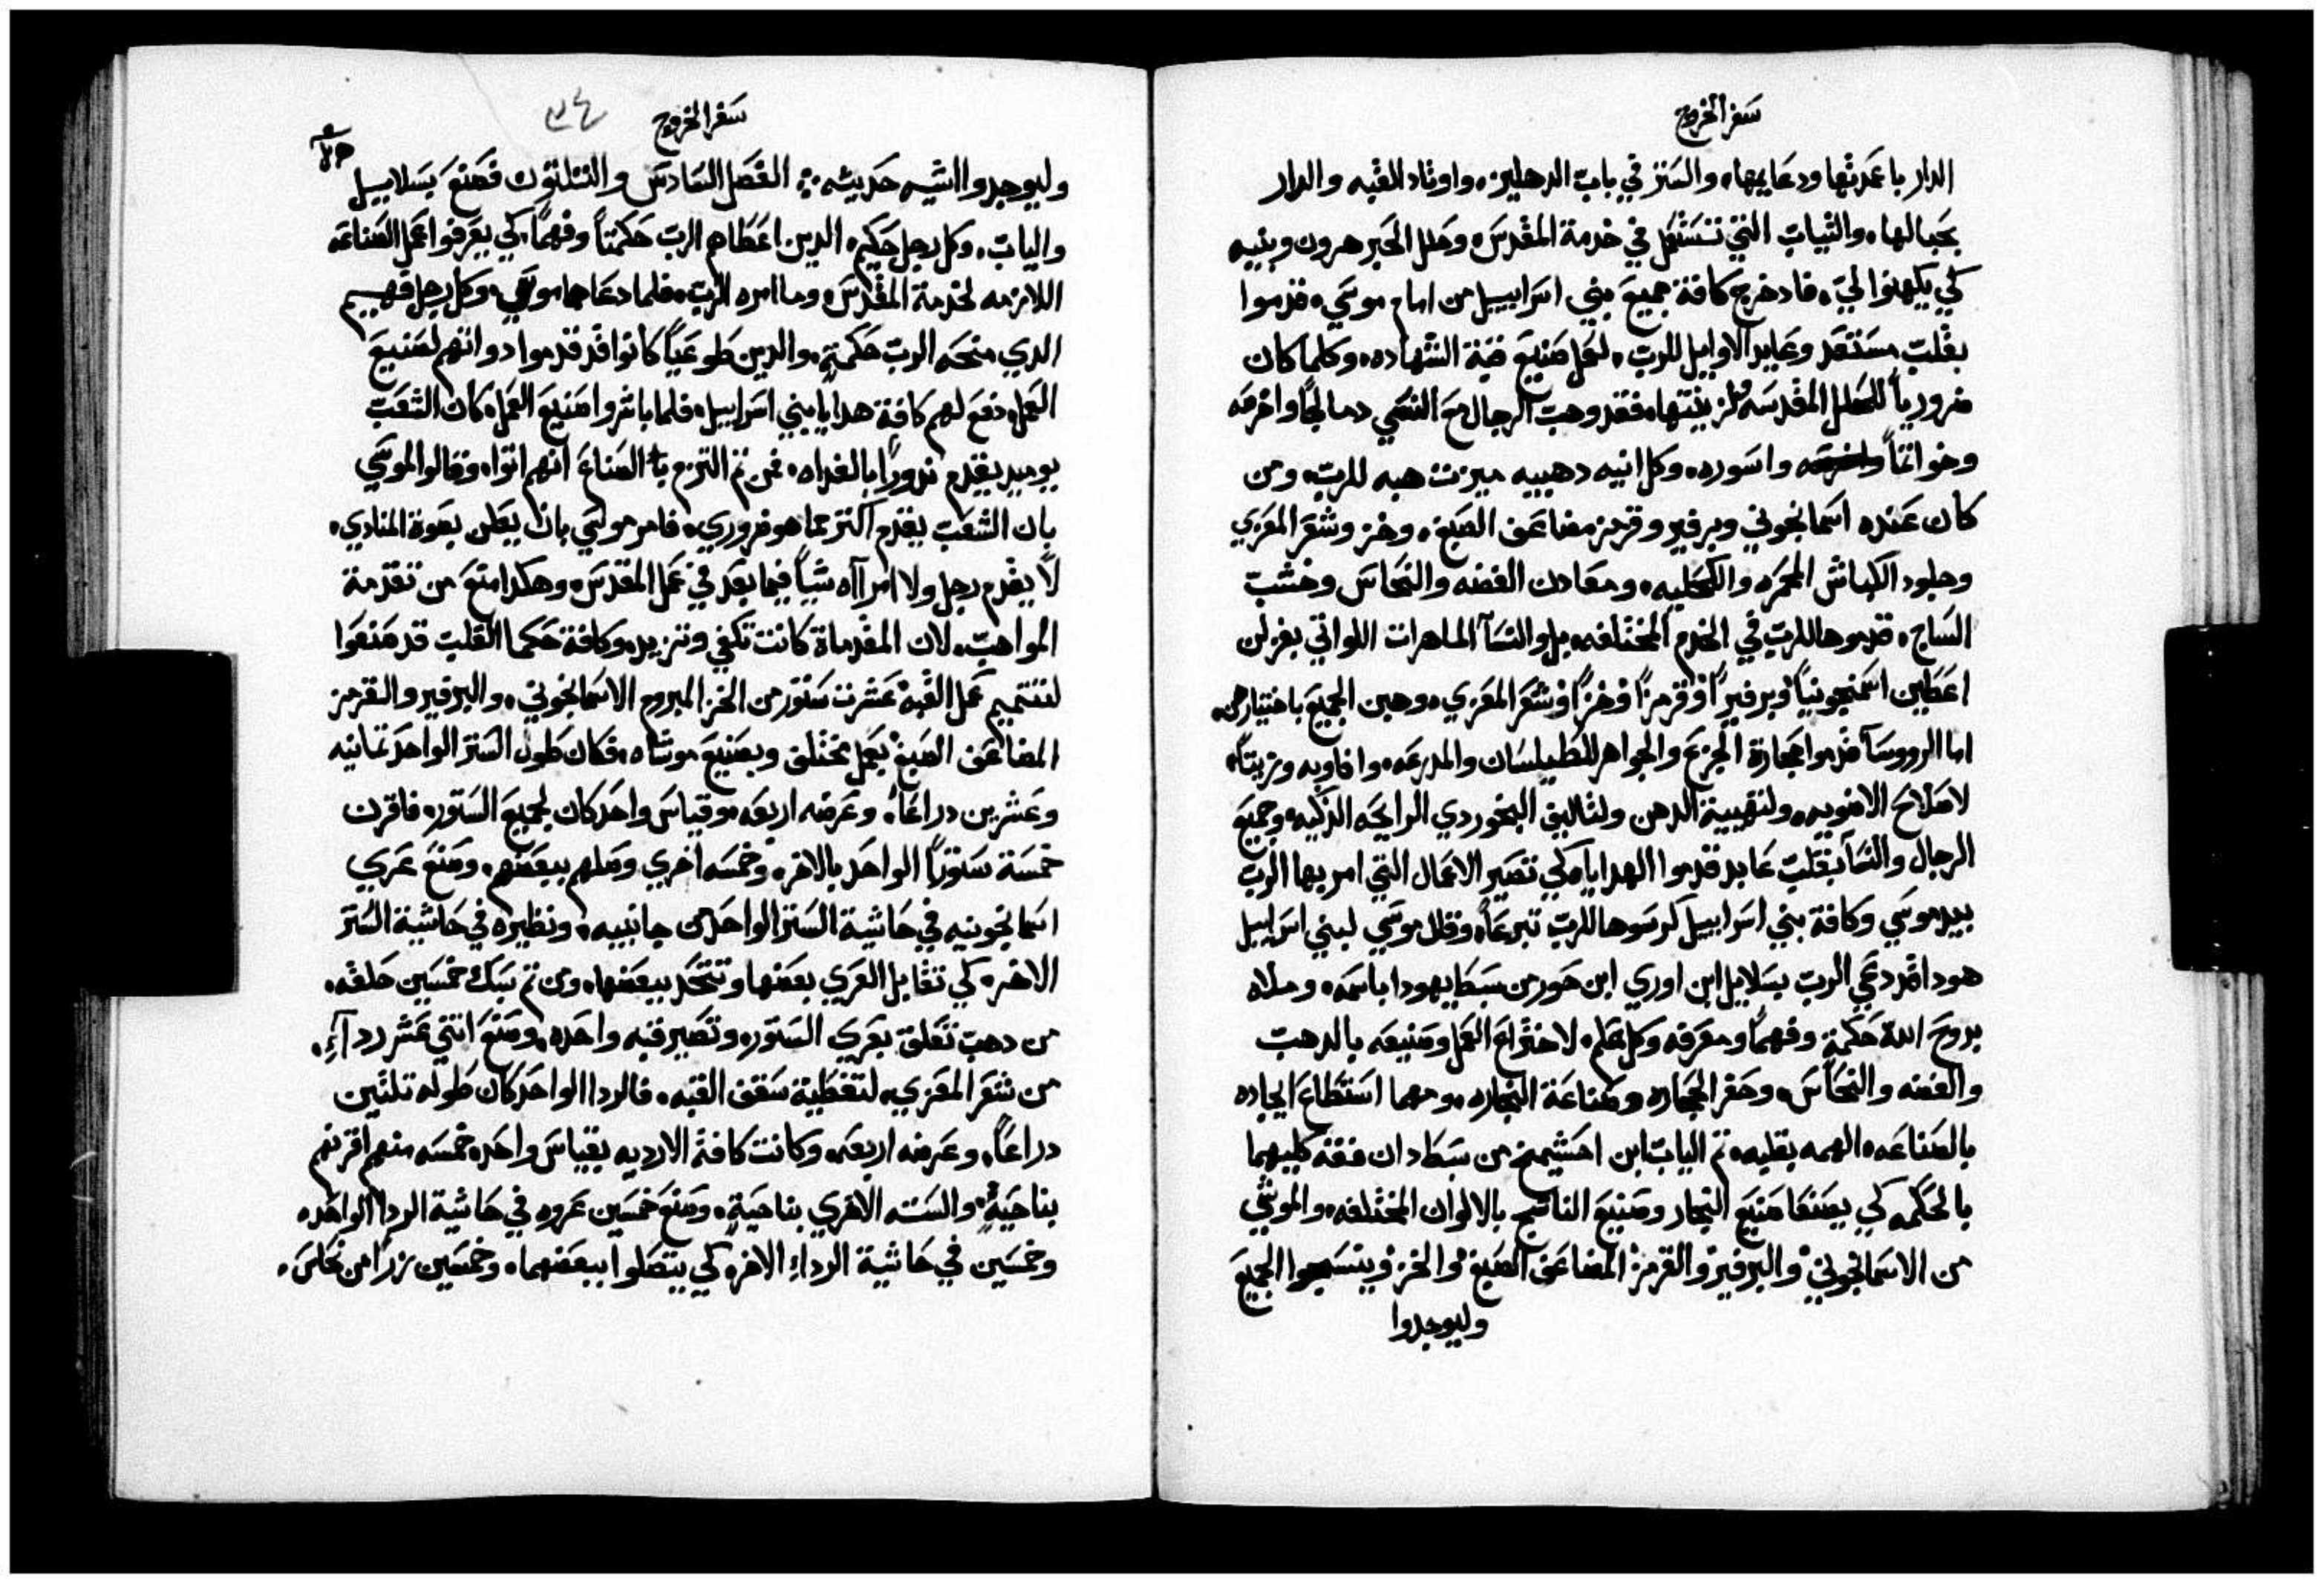 سفر الخروج
الدار باعمدتها ودعايمها، والستر في باب الدهليز، واوتاد القبه والدار
بحبالها، والثياب التي تستعمل في خدمة المقدس، وحلل الحبر هرون وبنيه
كي يكهنوا لي، فاد خرج كافة جميع بني اسراييل من امام موسي، قدموا
بقلب مستعد وعابد الاوايل للرب، لعمل صنيع قبة الشهاده، وكلما كان
ضرورياً للحلل المقدسه ولزينتها، فقد وهب الرجال مع النسي دمالجاً واخرصه
وخواتماً واسوره، وكل انيه دهبيه ميزت هبه للرب، ومن
كان عنده اسمانجوني وبرفير وقرمز مضاعف الصبغ، وخز وشعر المعزي
وجلود الكباش المحمره والكحليه، ومعادن الفضه والنحاس وخشب
الساج، قدموها للرب في الخدم المختلفه، بل والنسآ الماهرات اللواتي يغزلن
اعطين اسمنجونياً وبرفيراً وقرمزاً وخزاً وشعر المعزي، وهبن الجميع باختيارهن،
اما الرووسآ قدموا حجارة الجزع والجواهر للطيلسان والمدرعه، وافاويه وزيتاً،
لاصلاح الاضويه، ولتهيية الدهن ولتاليف البخور دي الرايحه الذكيه، وجميع
الرجال والنسآ بقلب عابد قدموا الهدايا، كي تصير الاعمال التي امر بها الرب
بيد موسي وكافة بني اسراييل كرسوها للرب تبرعاً، وقال موسي لبني اسراييل
هودا قد دعي الرب بسلاييل ابن اوري ابن حور من سبط يهودا باسمه، وملاه
بروح الله حكمة، وفهماً ومعرفه وكل علم، لاختراع العمل وصنيعه بالدهب
والفضه والنحاس، وحفر الحجاره وصناعة النجاره، ومهما استطاع ايجاده
بالصناعه، الهمه بقلبه، ثم الياب ابن احشيمخ من سبط دان فقفه كليهما
بالحكمه كي يصنعا صنيع النجار وصنيع الناسج بالالوان المختلفه، والموشي
من الاسمانجوني والبرفير والقرمز المضاعف الصبغ والخز وينسجوا الجميع
وليوجدوا
سفر الخروج
٣٤
وليوجدوا اشيه حديثه، الفصل السادس والتلتون فصنع بسلاييل
والياب، وكل رجل حكيم، الدين اعطاهم الرب حكمتاً وفهماً، كي يعرفوا عمل الصناعه
اللازمه لخدمة المقدس، وما امره الرب، فلما دعاهما موسي، وكل رجل فهيم
الدي منحه الرب حكمةٍ، والدين طوعياً كانوا قد قدموا دواتهم لصنيع
العمل، دفع لهم كافة هدايا بني اسراييل، فلما باشروا صنيع العمل، كان الشعب
يوميد يقدم ندوراً بالغداه، فمن تم التزم يا الصناع انهم اتوا، وقالوا لموسي
بان الشعب يقدم اكتر مما هو ضروري، فامر موسي بان يعلن بصوة المنادي،
لا يقدم رجل ولا امرآاه شياً فيما بعد في عمل المقدس، وهكدا امتنع من تقدمة
المواهب، لان المقدماة كانت تكفي وتزيد، وكافة حكما القلب قد صنعوا
لتتميم عمل القبه عشرت ستور من الخز المبروم الاسمانجوني، والبرفير والقرمز
المضاعف الصبغ بعمل مختلف وبصنيع موشاه، فكان طول الستر الواحد تمانيه
وعشرين دراعاً، وعرضه اربعه، وقياس واحد كان لجميع الستور، فاقرن
خمسة ستوراً الواحد بالاخر، وخمسه اخري وصلهم ببعضهم، وصنع عري
اسمانجونيه في حاشية الستر الواحد من جانبيه، ونظيره في حاشية الستر
الاخر، كي تقابل العري بعضها وتتحد ببعضها، ومن تم سبك خمسين حلقه،
من دهب تعلق بعري الستور، وتصير قبه واحده، وصنع اتني عشر ردآءٍ،
من شعر المعزي، لتغطية سقف القبه، فالردا الواحد كان طوله تلتين
دراعاً، وعرضه اربعه، وكانت كافة الارديه بقياس واحد، خمسه منهم اقرنهم
بناحيةٍ، والسته الاخري بناحيةٍ، وصنع خمسين عروه في حاشية الردا الواحد،
وخمسين في حاشية الرداءِ الاخر، كي يتصلوا ببعضهما، وخمسين زراً من نحاس،